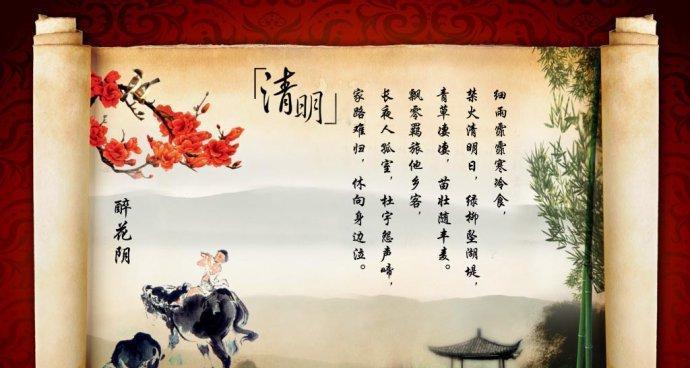 「清明」
细雨霏霏寒冷食，
禁火清明日，绿柳坠湖堤，
青草凄凄，苗壮随丰麦。
飘零羁旅他乡客，
长夜人孤室，杜宇怨声啼，
家路难归，休向身边泣。
醉花阴